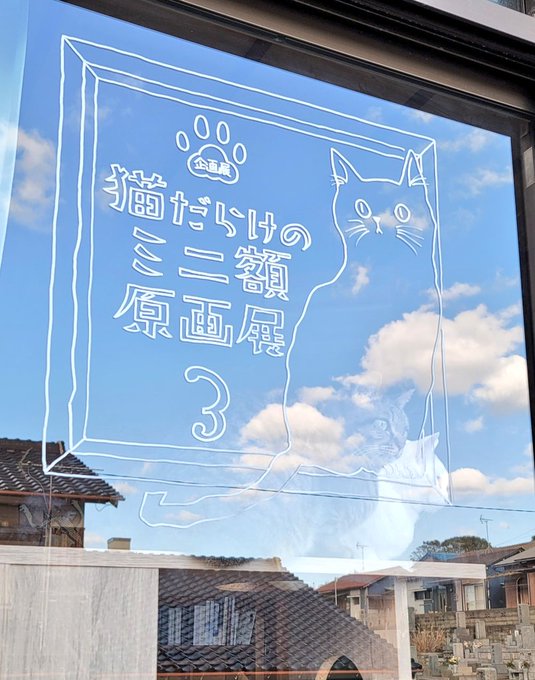 企画展
猫だらけの
ミニ額
原画展
3